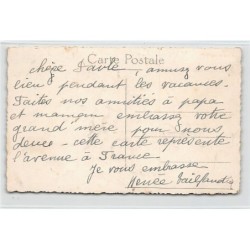 Carte Postale
chère , amusez vous
bien pendant les vacances.
Faites nos amitiés à papa
et maman embrassez votre
grand mère pour nous
deux - cette carte représente
l'avenue à France.
Je vous embrasse
Renée